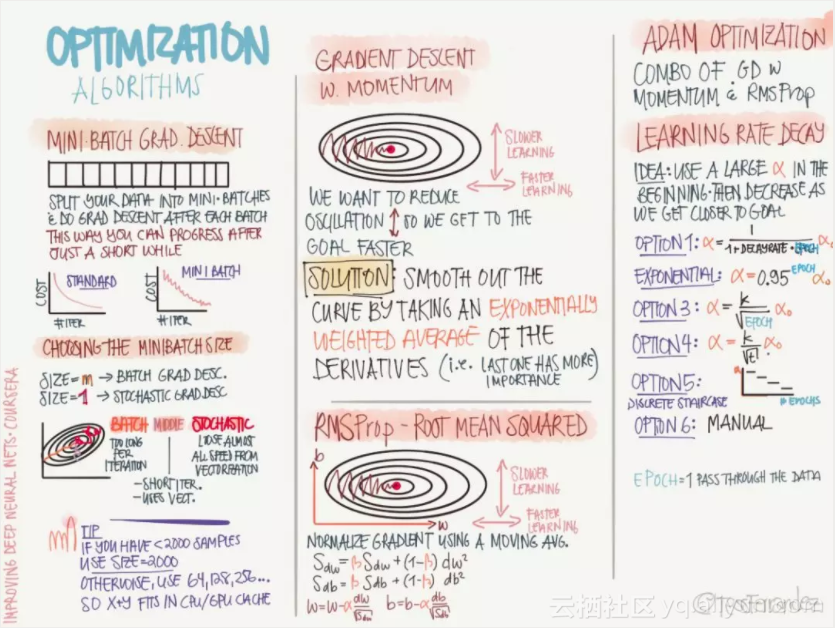 OPTIMIZATION
ALGORITHMS
MINI-BATCH GRAD. DESCENT
SPLIT YOUR DATA INTO MINI-BATCHES
& DO GRAD DESCENT AFTER EACH BATCH
THIS WAY YOU CAN PROGRESS AFTER
JUST A SHORT WHILE
COST
STANDARD
# ITER
COST
MINI BATCH
# ITER
CHOOSING THE MINIBATCH SIZE
SIZE=m → BATCH GRAD DESC.
SIZE=1 → STOCHASTIC GRAD DESC
BATCH MIDDLE STOCHASTIC
TOO LONG
PER
ITERATION
LOSE ALMOST
ALL SPEED FROM
VECTORIZATION
-SHORT ITER.
-USES VECT.
m
TIP
IF YOU HAVE <2000 SAMPLES
USE SIZE=2000
OTHERWISE, USE 64,128,256...
SO X+Y FITS IN CPU/GPU CACHE
IMPROVING DEEP NEURAL NETS · COURSERA
GRADIENT DESCENT
W. MOMENTUM
SLOWER
LEARNING
FASTER
LEARNING
WE WANT TO REDUCE
OSCILLATION ↕ SO WE GET TO THE
GOAL FASTER
SOLUTION: SMOOTH OUT THE
CURVE BY TAKING AN EXPONENTIALLY
WEIGHTED AVERAGE OF THE
DERIVATIVES (i.e. LAST ONE HAS MORE
IMPORTANCE)
RMSProp - ROOT MEAN SQUARED
b
w
SLOWER
LEARNING
FASTER
LEARNING
NORMALIZE GRADIENT USING A MOVING AVG.
Sdw = β Sdw + (1-β) dw²
Sdb = β Sdb + (1-β) db²
w = w - α dw/√Sdw b = b - α db/√Sdb
ADAM OPTIMIZATION
COMBO OF GD W
MOMENTUM & RMSProp
LEARNING RATE DECAY
IDEA: USE A LARGE α IN THE
BEGINNING. THEN DECREASE AS
WE GET CLOSER TO GOAL
OPTION 1: α = 1/(1+DECAYRATE·EPOCH) α₀
EXPONENTIAL: α = 0.95^EPOCH α₀
OPTION 3: α = k/√EPOCH α₀
OPTION 4: α = k/√t α₀
OPTION 5:
DISCRETE STAIRCASE
α
EPOCHS
OPTION 6: MANUAL
EPOCH = 1 PASS THROUGH THE DATA
云栖社区